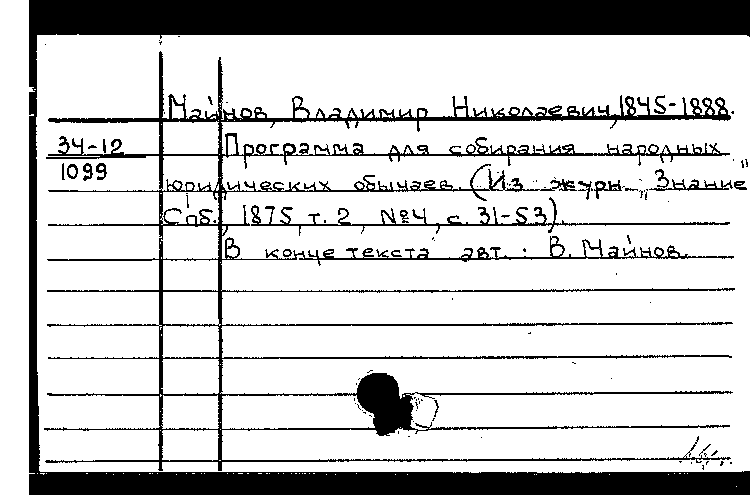 Майнов, Владимир Николаевич, 1845-1888.
34-12
1099
Программа для собирания народных
юридических обычаев. (Из журн. „Знание"
Спб., 1875, т. 2, №4, с. 31-53).
В конце текста авт.: В. Майнов.